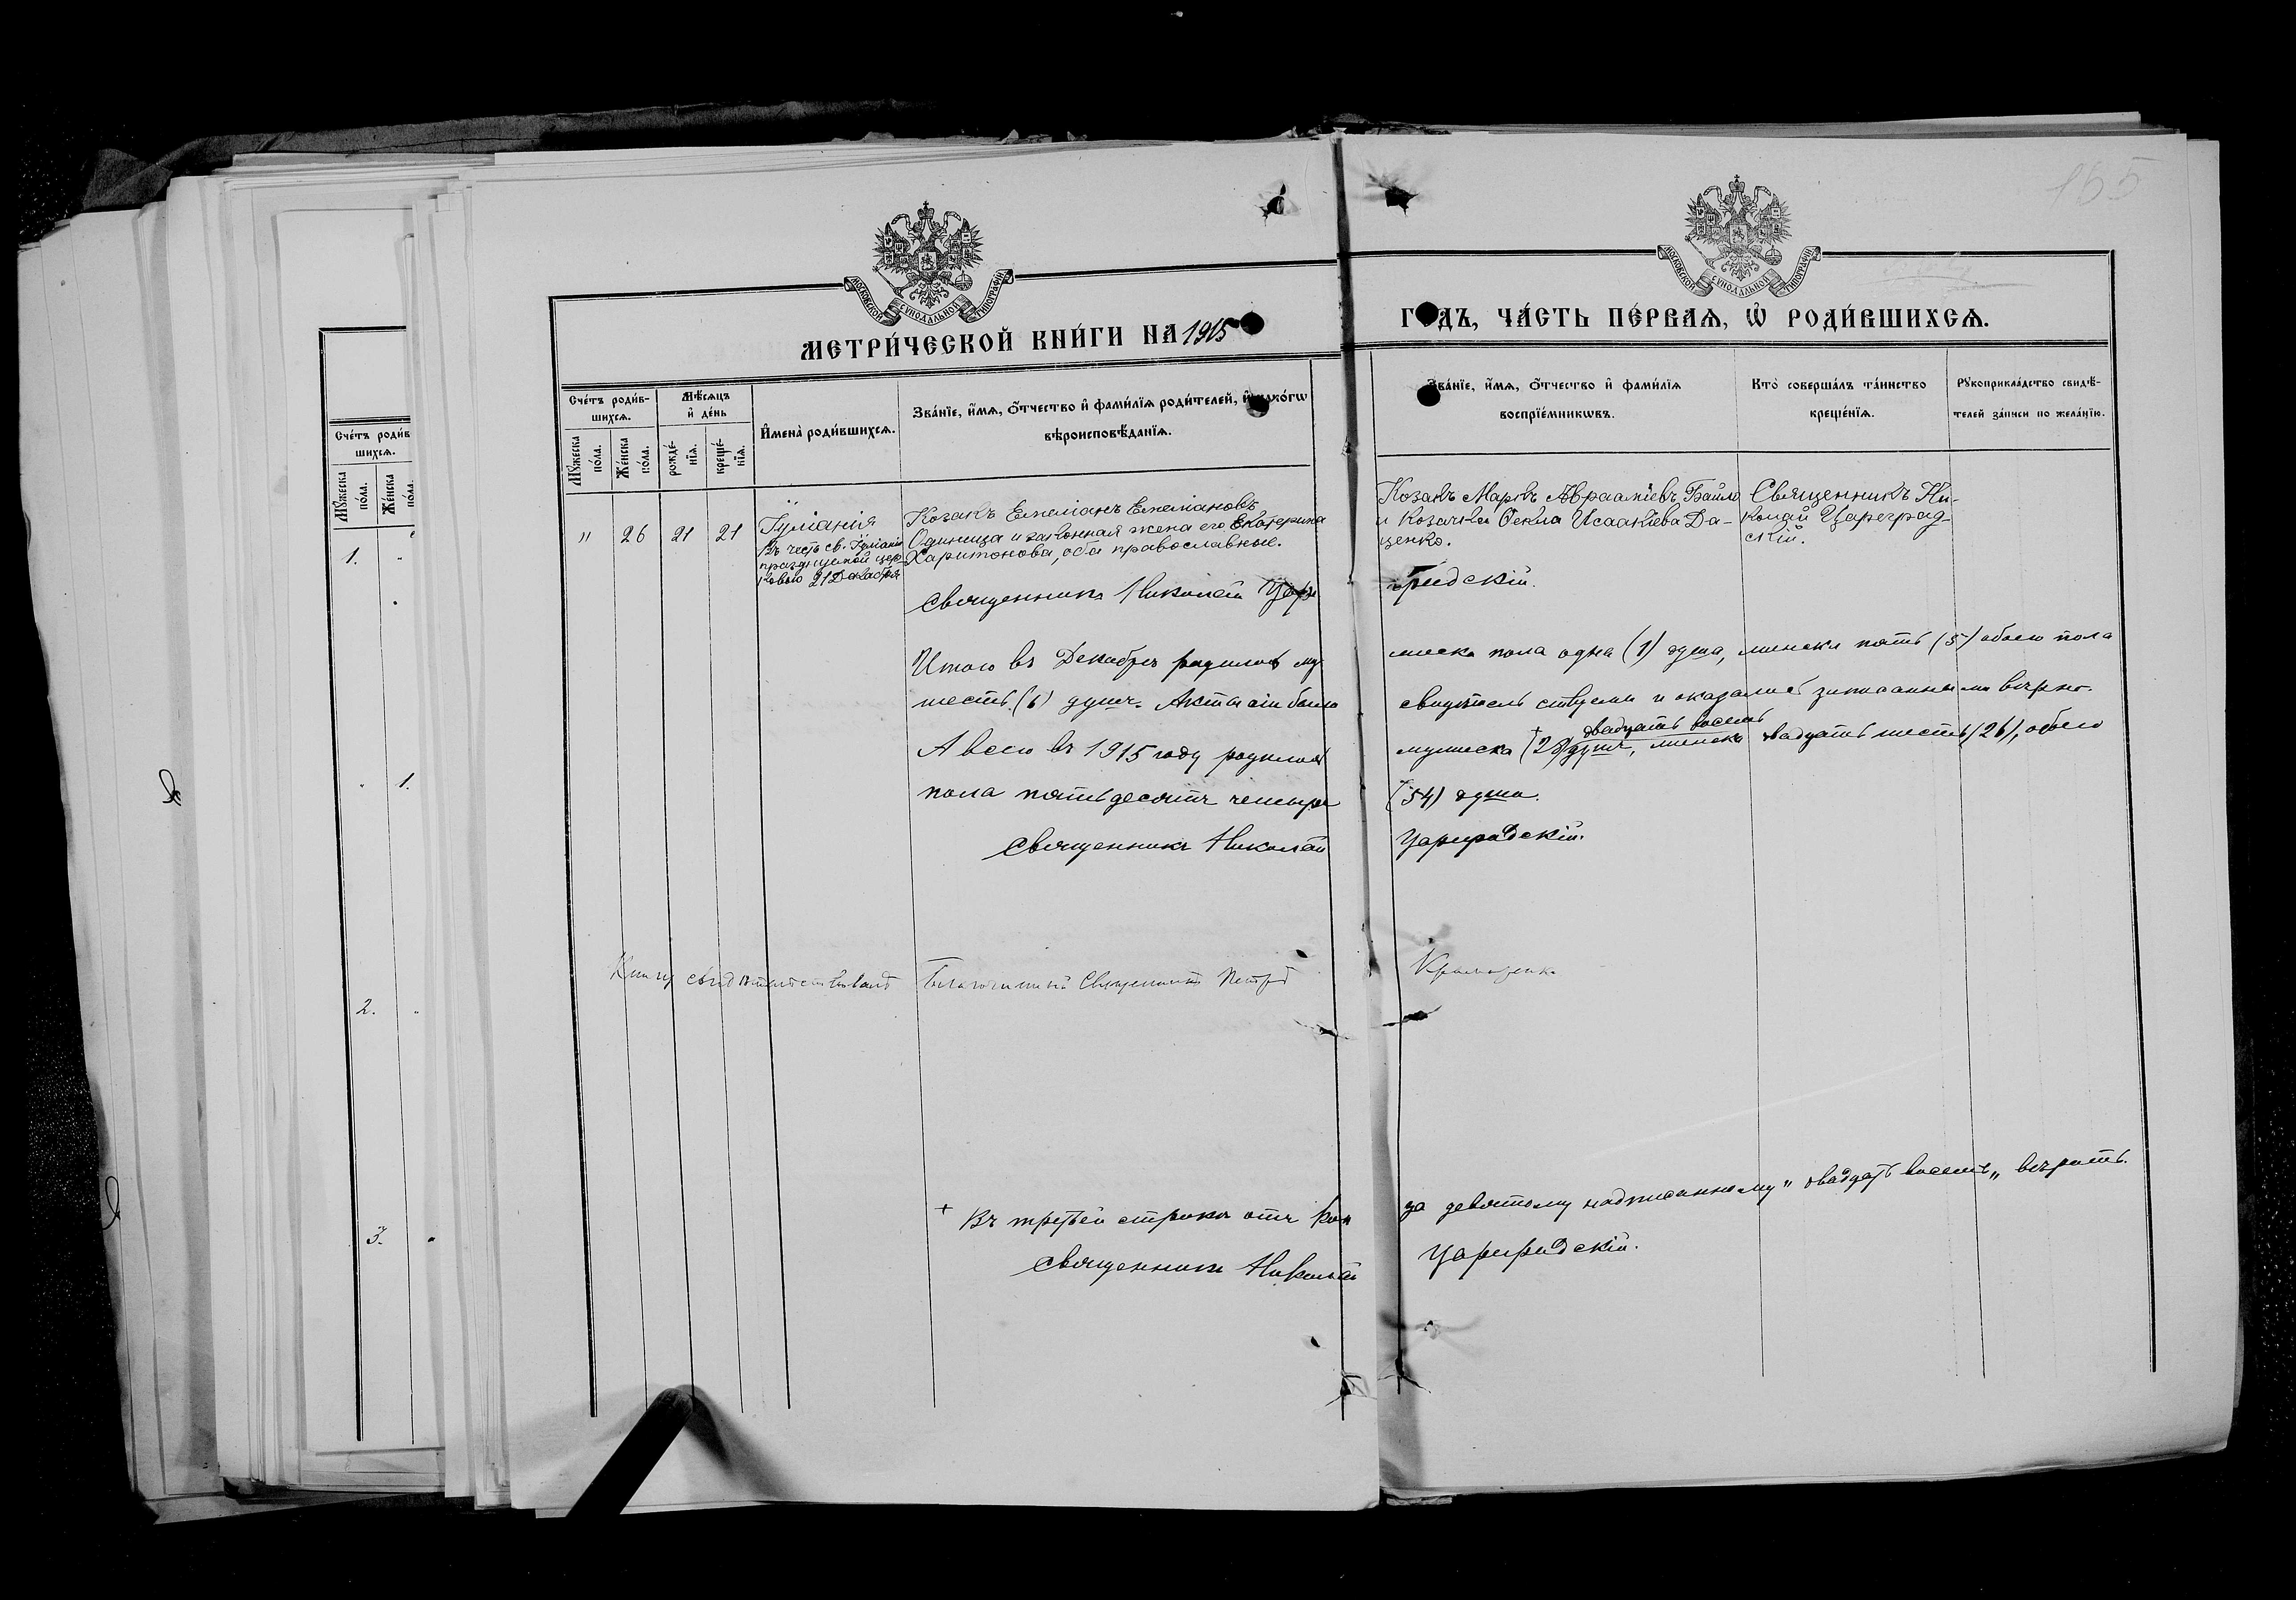 165
МОСКОВСКОЙ СѴНОДАЛЬНОЙ ТИПОГРАФІИ
МОСКОВСКОЙ СѴНОДАЛЬНОЙ ТИПОГРАФІИ
МЕТРИ́ЧЕСКОЙ КНИ́ГИ НА 1915
ГОДЪ, ЧА́СТЬ ПЕ́РВАѦ, Ѡ҆ РОДИ́ВШИХСѦ.
Сче́тъ роди́в-
шихсѧ.
Мꙋ́жеска по́ла.
Же́нска по́ла.
Сче́тъ роди́в-
шихсѧ.
Мꙋ́жеска по́ла.
Же́нска по́ла.
Мѣ́сѧцъ
и҆ де́нь
рожде́нїѧ.
креще́нїѧ.
И҆мена̀ роди́вшихсѧ.
Зва́нїе, и҆́мѧ, ѻ҆́тчество и҆ фами́лїѧ роди́телей, и҆ како́гѡ
вѣроисповѣ́данїѧ.
Зва́нїе, и҆́мѧ, ѻ҆́тчество и҆ фами́лїѧ
воспрїе́мникѡвъ.
Кто̀ соверша́лъ та́инство
креще́нїѧ.
Рꙋкоприкла́дство свидѣ́-
телей за́писи по жела́нїю.
1. "
" 1.
2. "
3. "
" 26 21 21
Іуліанія
Въ честь св. Іуліаніи
празднуемой цер-
ковью 21 Декабря
Козакъ Емеліанъ Емеліановъ
Одиница и законная жена его Екатерина
Харитонова, оба православные.
Козакъ Маркъ Авраамiевъ Байло
и козачка Ѳекла Исаакіева Да-
ценко.
Священникъ Ни-
колай Цареград-
скій.
Священникъ Николай Царе градскій.
Итого въ Декабрѣ родилось му жеска пола одна (1) душа, женска пять (5) обоего пола
шесть (6) душъ. Акты сіи были свидѣтельствуемы и оказались записанными вѣрно.
двадцать восемь
А всего въ 1915 году родилось мужеска + (28) душъ, женска двадцать шесть (26), обоего
пола пятьдесятъ четыре (54) душы.
Священникъ Николай Цареградскій.
Книгу свидѣтельствовалъ Благочинный Священникъ Петръ
+ Въ третьей строкѣ отъ кон ца девятому надписанному „двадцать восемь„ вѣрить.
Священникъ Николай Цареградскій.